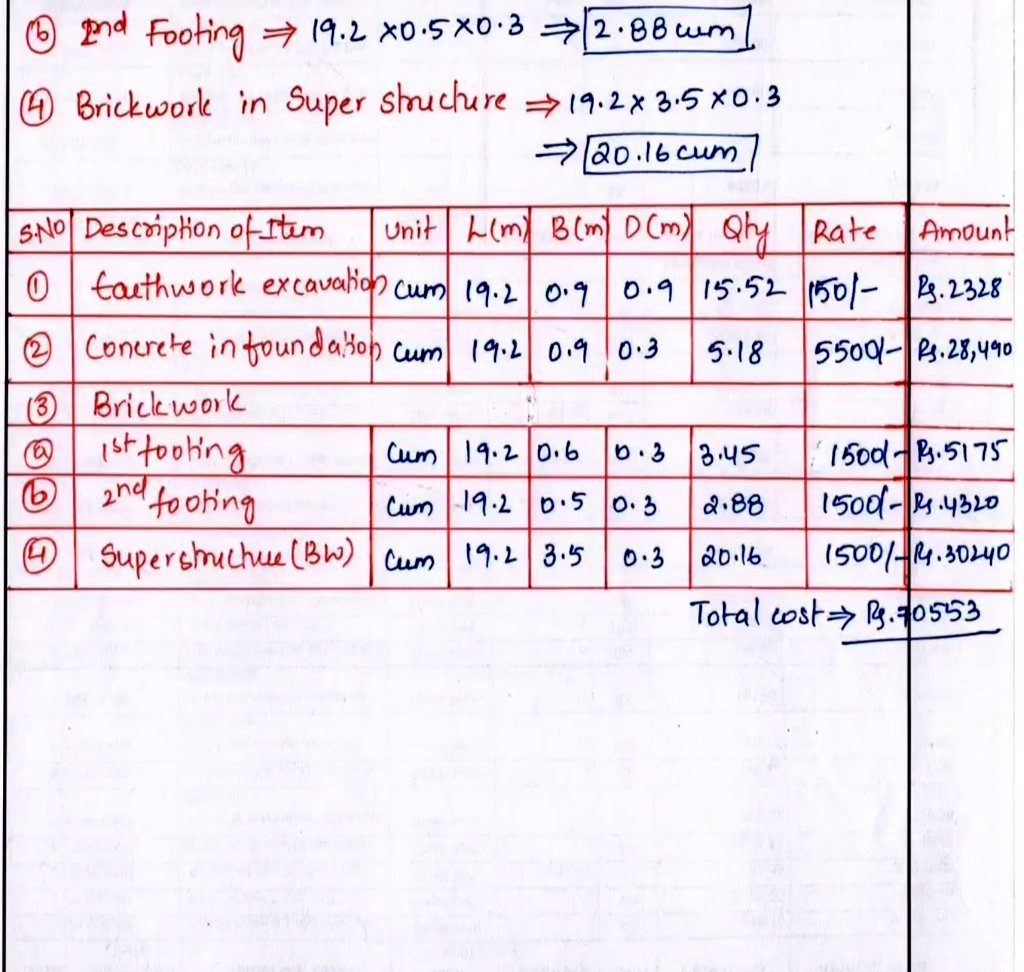 (b) 2nd Footing ⇒ 19.2 x0.5 x0.3 ⇒ 2.88 cum
(4) Brickwork in Super structure ⇒ 19.2 x 3.5 x 0.3
⇒ 20.16 cum
S.NO Description of Item Unit L(m) B(m) D(m) Qty Rate Amount
(1) Earthwork excavation cum 19.2 0.9 0.9 15.52 150/- Rs.2328
(2) Concrete in foundation cum 19.2 0.9 0.3 5.18 5500/- Rs.28,490
(3) Brickwork
(a) 1st footing cum 19.2 0.6 0.3 3.45 1500/- Rs.5175
(b) 2nd footing cum 19.2 0.5 0.3 2.88 1500/- Rs.4320
(4) Superstructure (BW) cum 19.2 3.5 0.3 20.16 1500/- Rs.30240
Total cost ⇒ Rs.70553